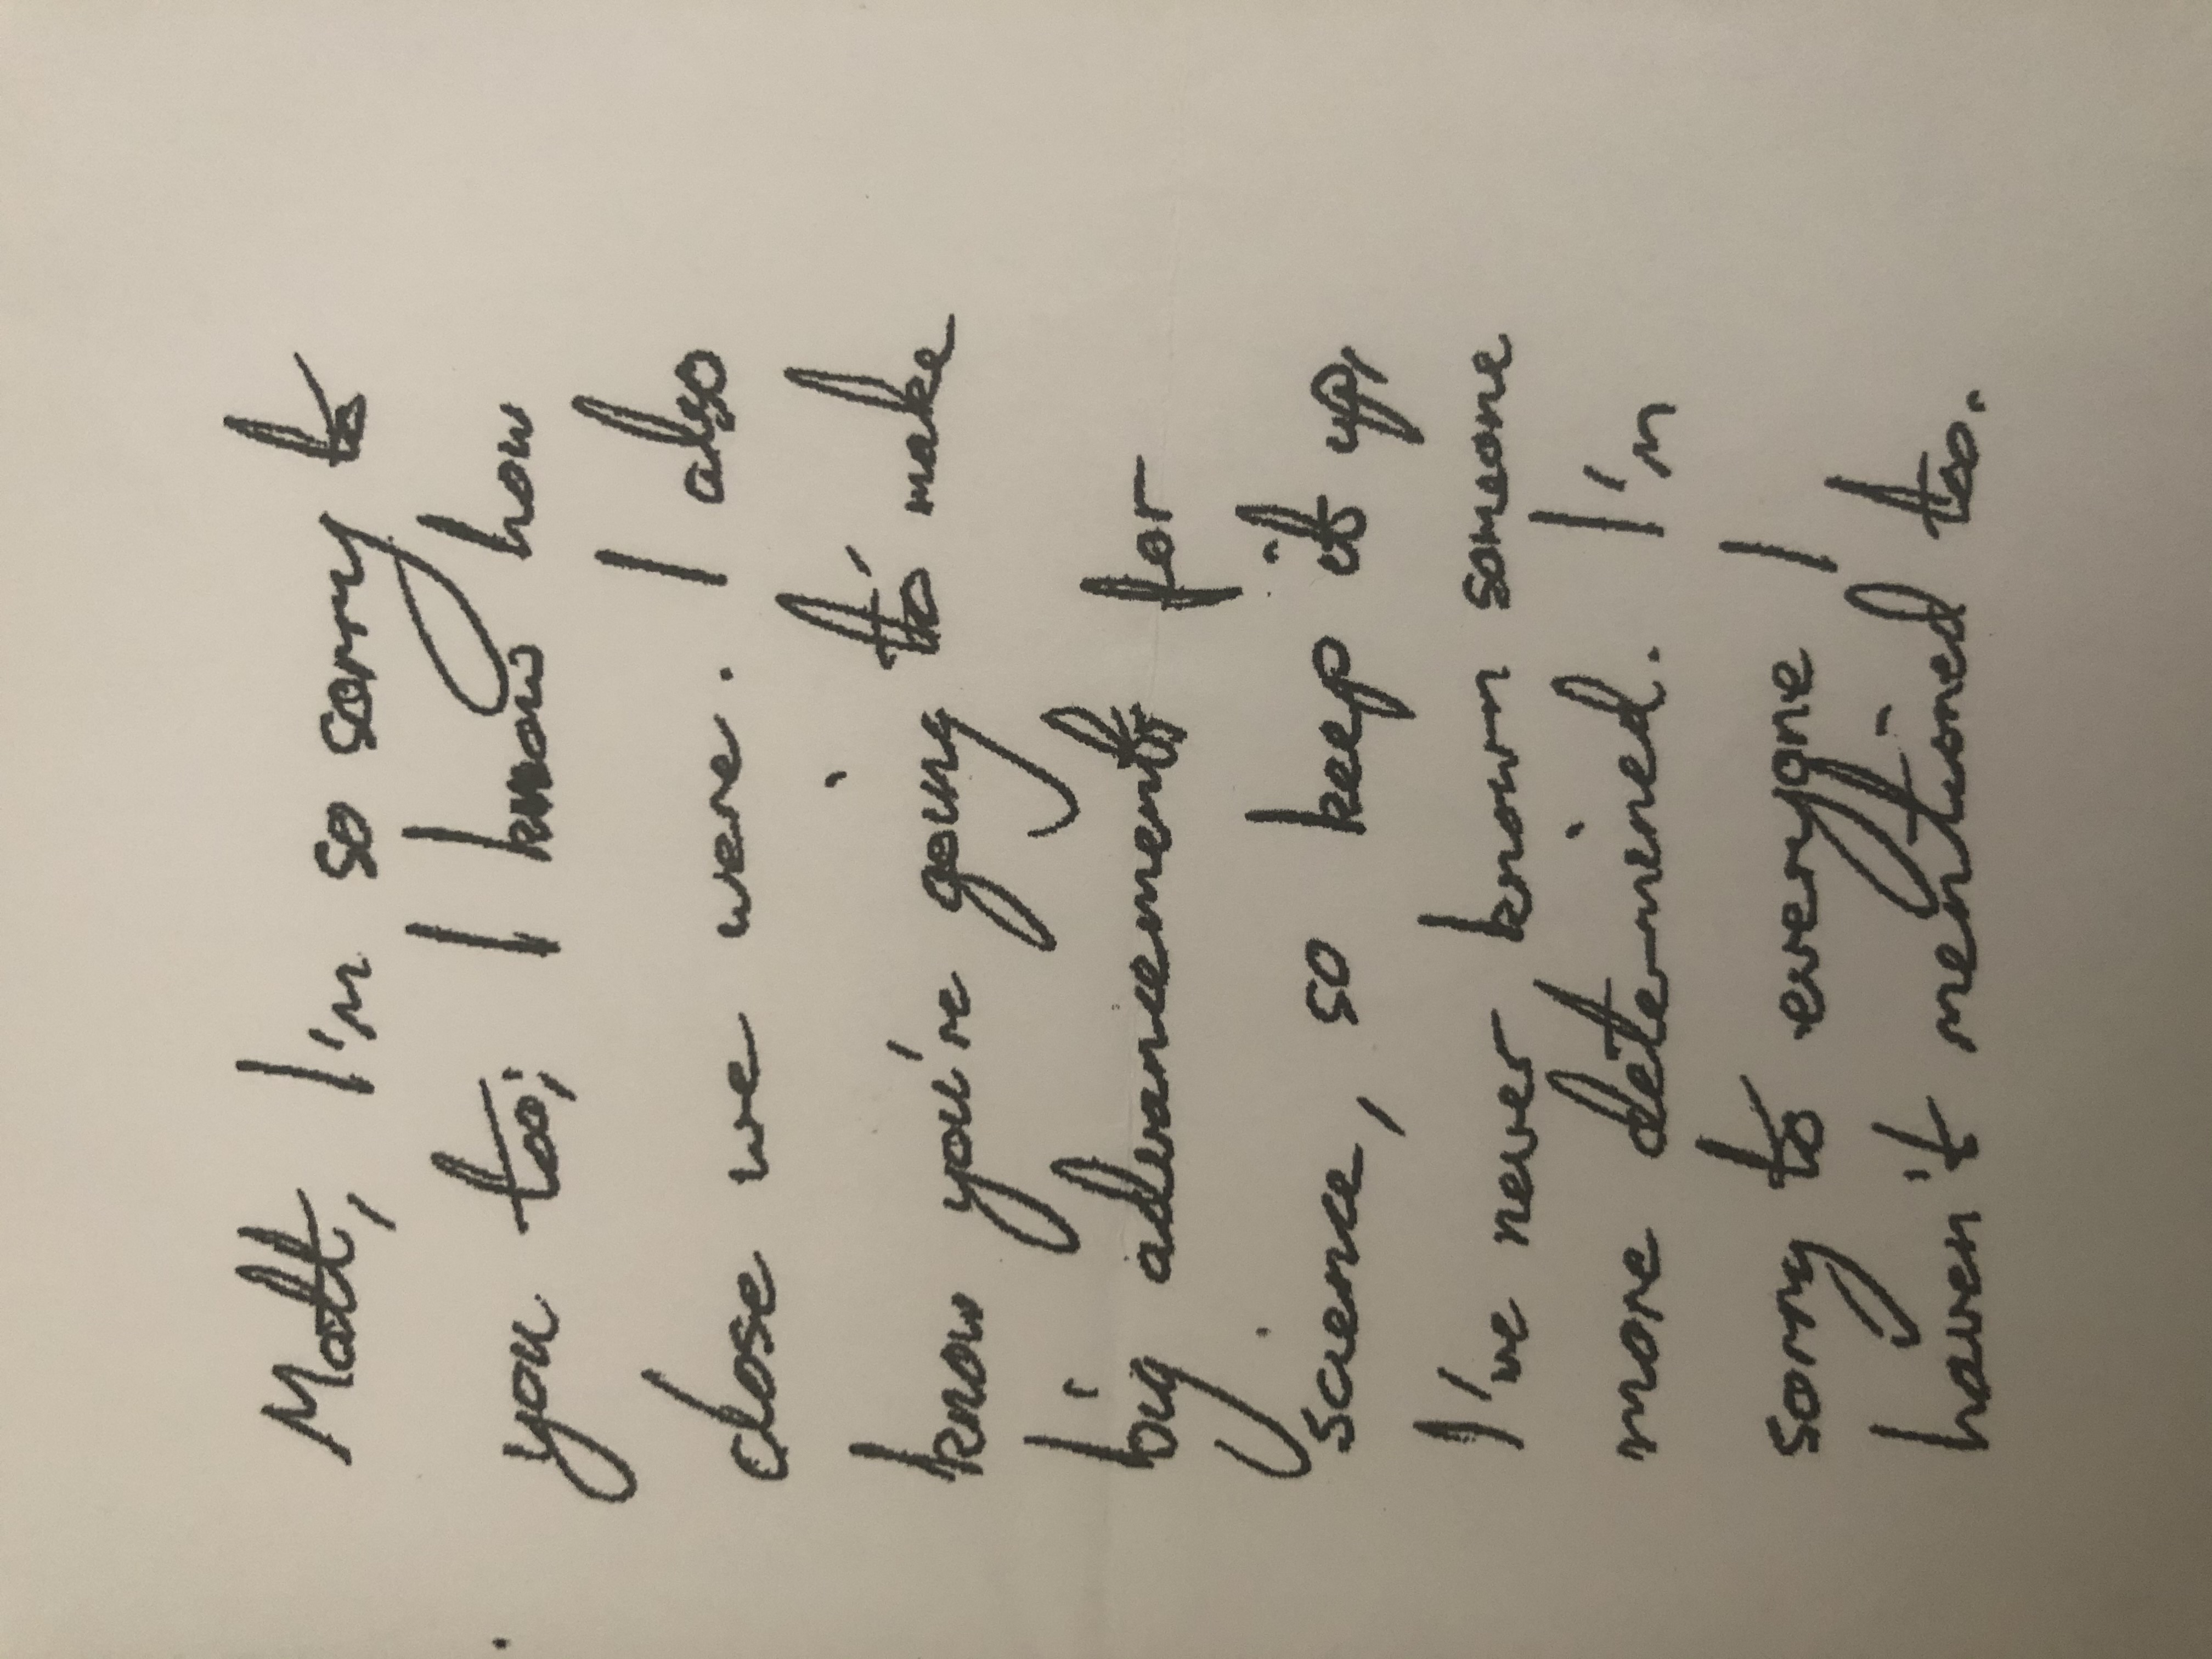 Matt, I'm so sorry to
you too; I know how
close we were. I also
know you're going to make
big advancements for
science, so keep it up,
I've never known someone
more determined. I'm
sorry to everyone I
haven't mentioned too.